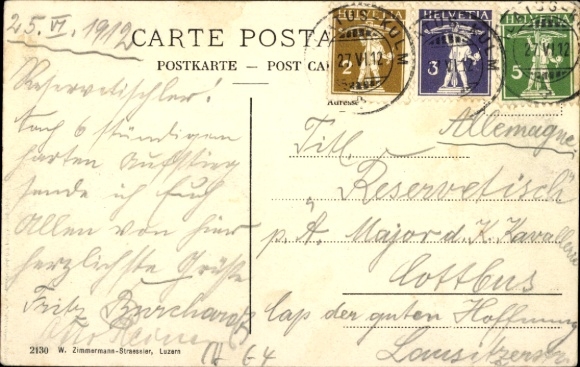 25. VI. 1912
CARTE POSTA
POSTKARTE — POST CA
HELVETIA
2
HELVETIA
3
HELVETIA
5
KULM
27 VI.12
27 VI.12
Adresse
Reservetischler!
Nach 6 stündigem
harten Aufstieg
sende ich Euch
Allen von hier
herzlichste Grüße
Fritz
Allemagne
Titl.
"Reservetisch"
p. A. Major d. K. Kavallerie
Cottbus
Cap der guten Hoffnung
Lausitzerstr
2130 W. Zimmermann-Straessler, Luzern
64